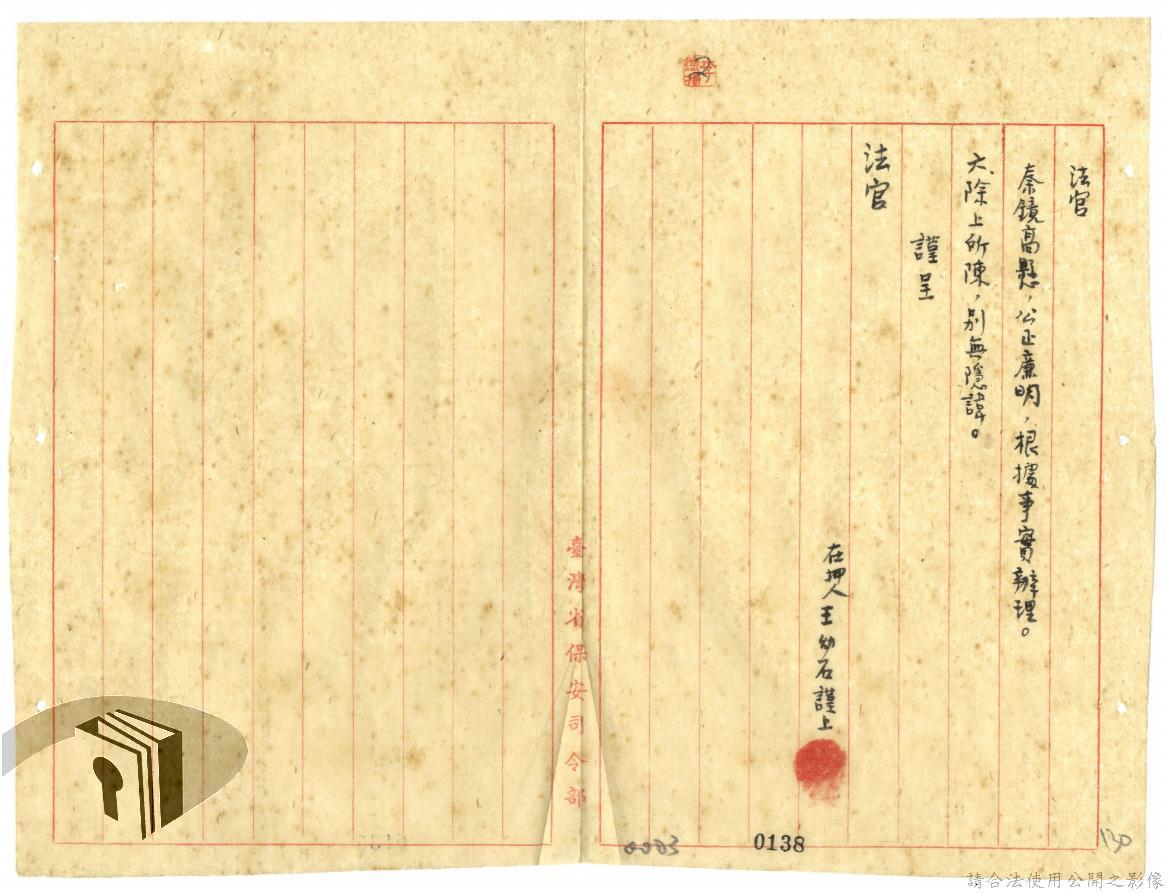 法官
秦鏡高懸,公正廉明,根據事實辦理。
六、除上所陳,別無隱諱。
謹呈
法官
在押人王幼石謹上
臺灣省保安司令部
0003
0138
130
請合法使用公開之影像